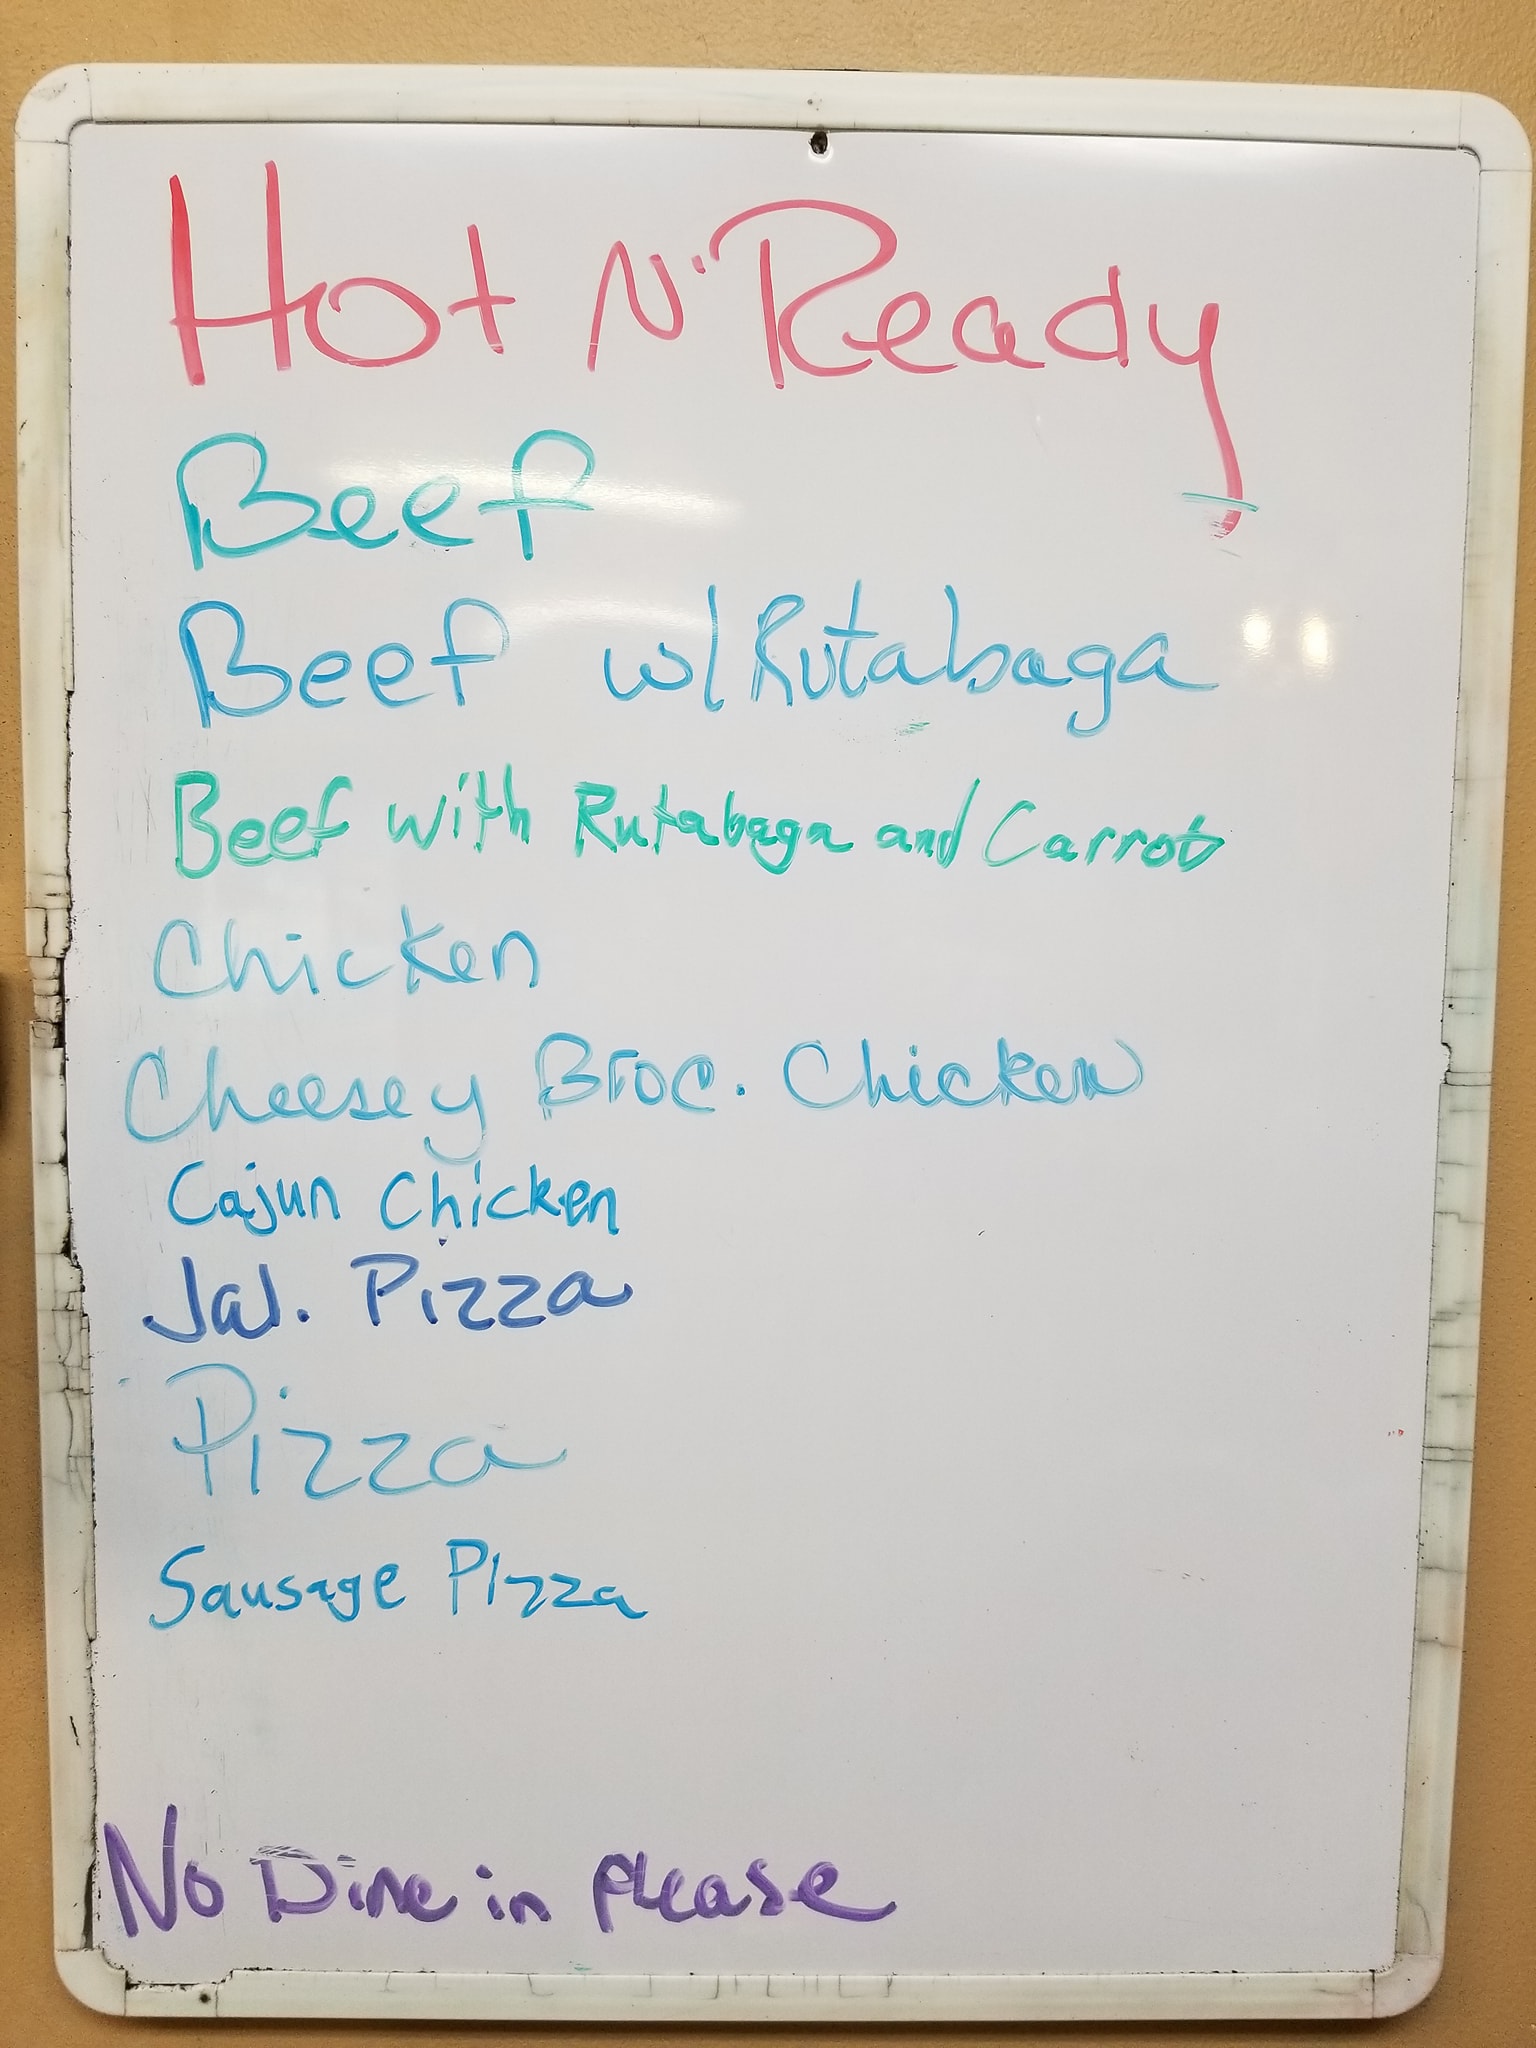 Hot N' Ready
Beef
Beef w/ Rutabaga
Beef with Rutabaga and Carrots
Chicken
Cheesey Broc. Chicken
Cajun Chicken
Jal. Pizza
Pizza
Sausage Pizza
No Dine in please